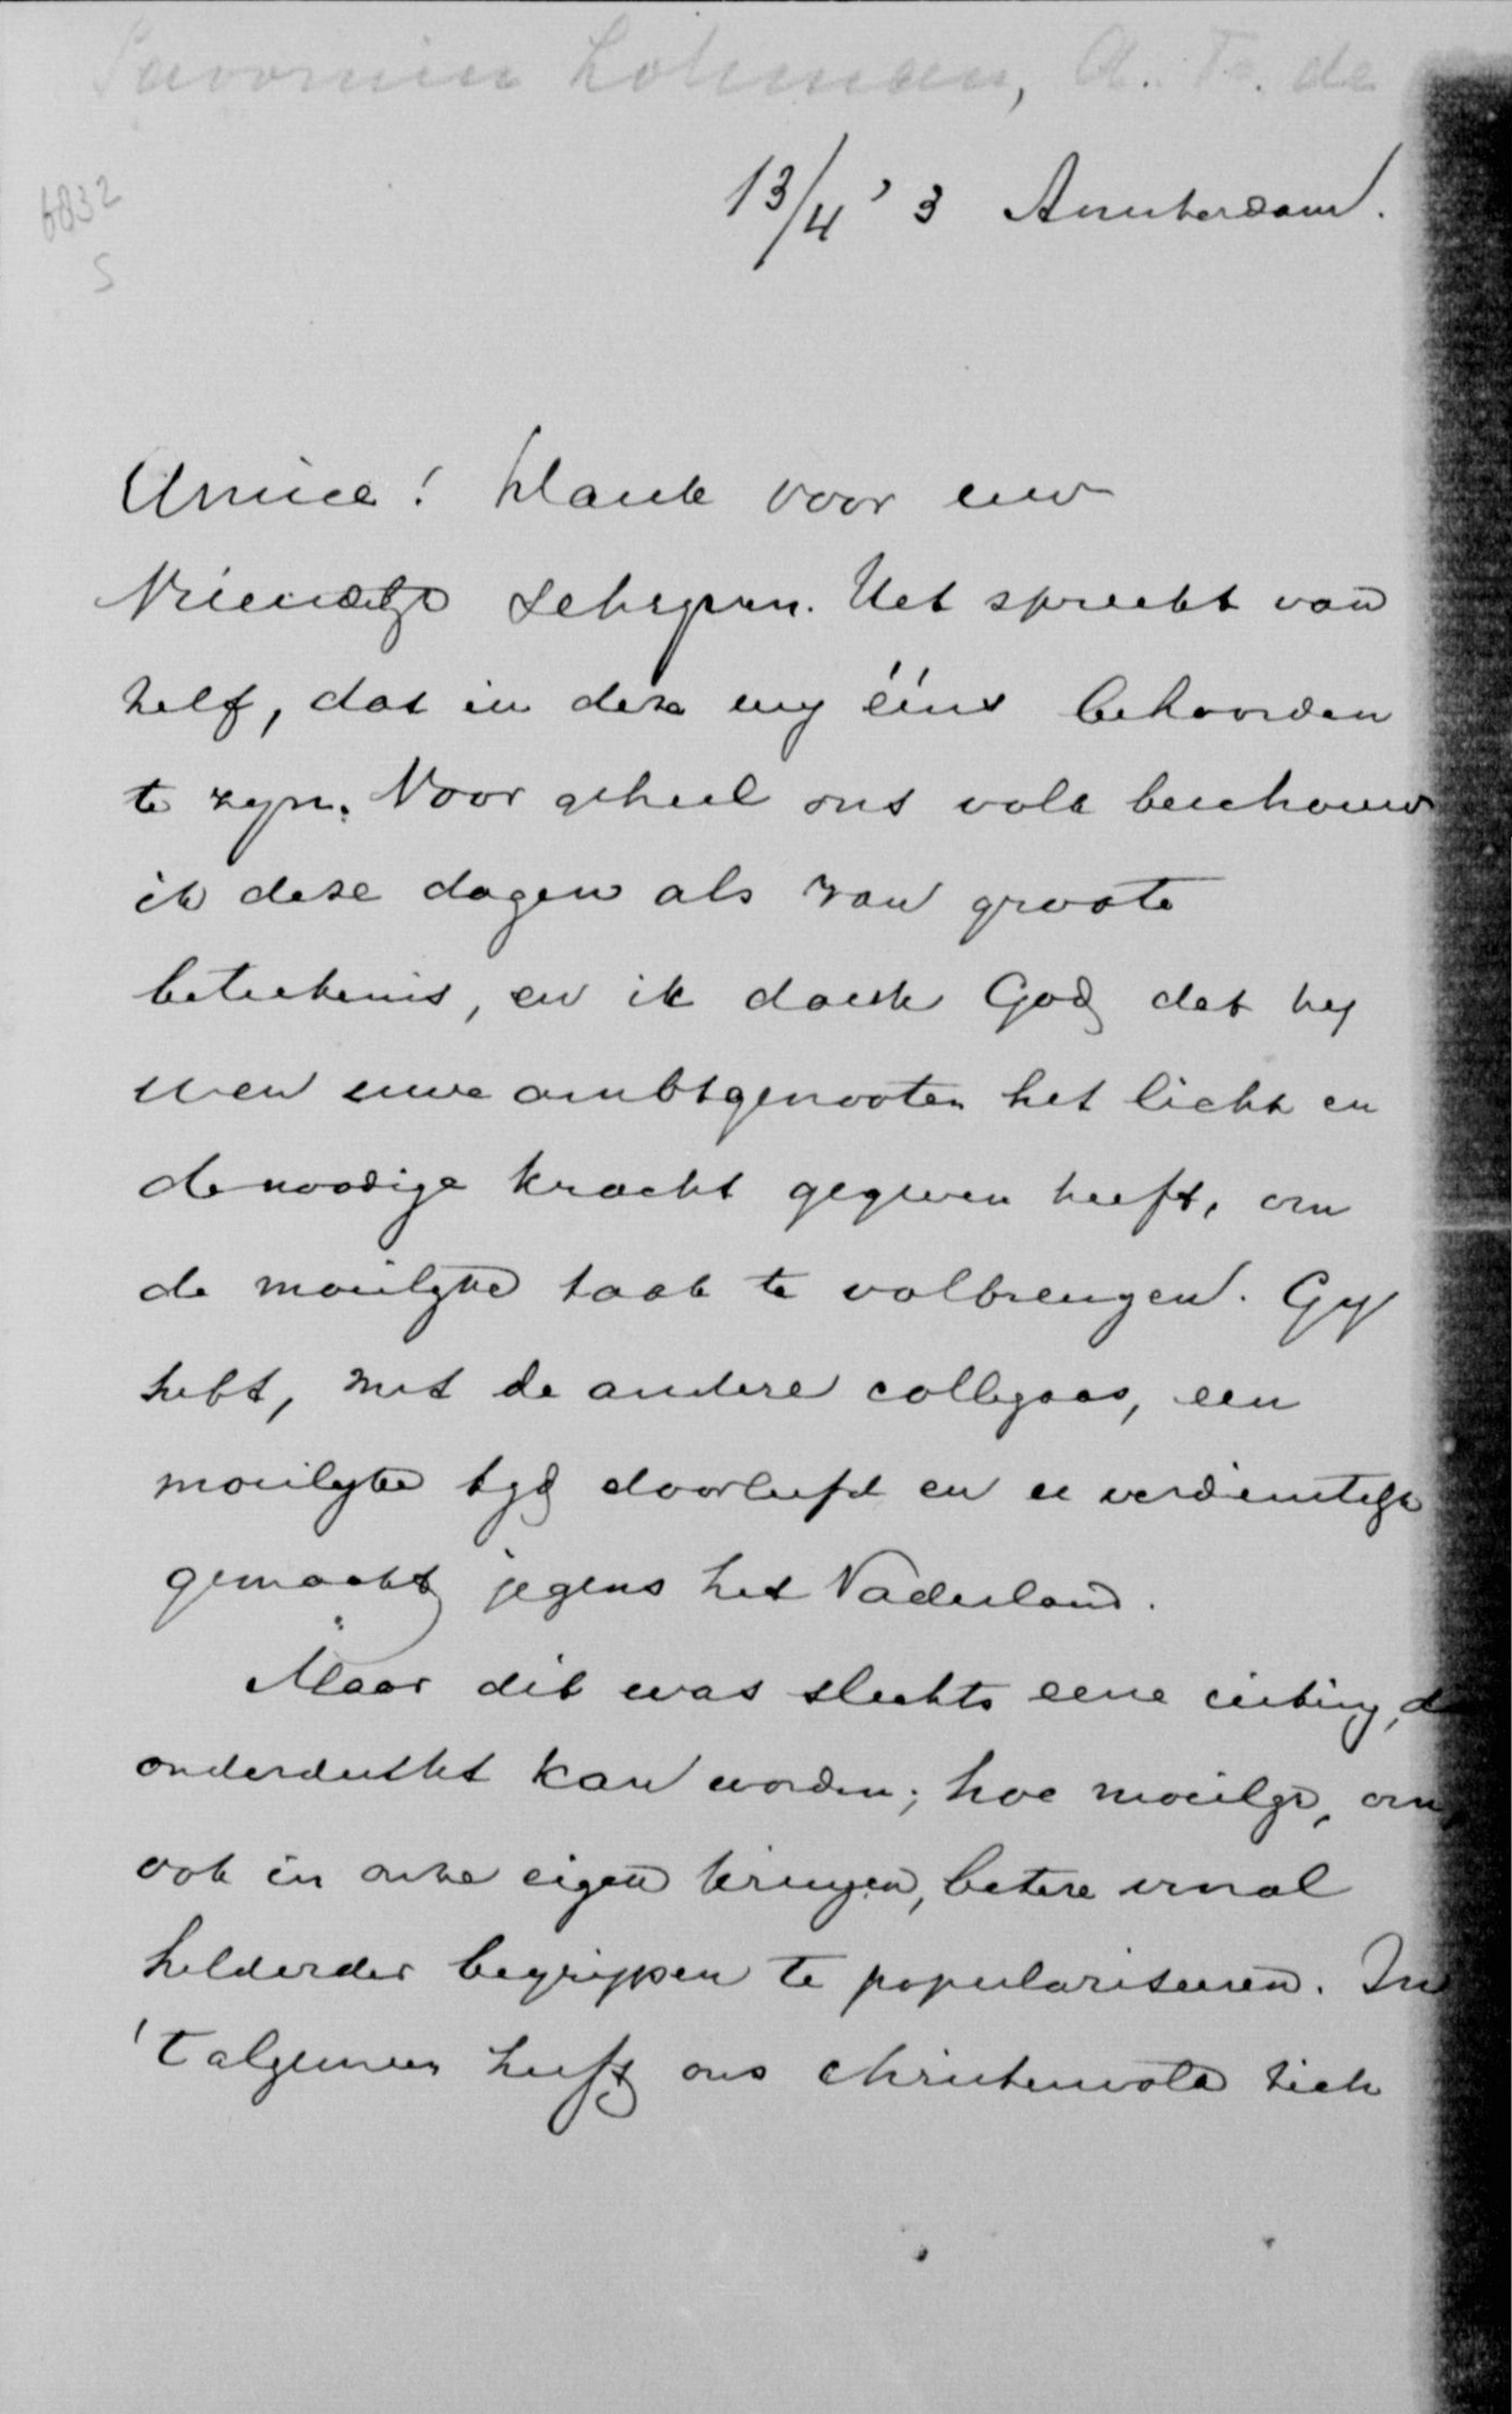 Savornin Lohman, A. F. de
6832
S
13/4 '3 Amsterdam.
Amice! Dank voor uw
vriendelijk schrijven. Het spreekt van
zelf, dat in deze wij ééns behoorden
te zijn. Voor geheel ons volk beschouw
ik deze dagen als van groote
beteekenis, en ik dank God dat hij
u en uwe ambtgenooten het licht en
de noodige kracht gegeven heeft, om
de moeilijke taak te volbrengen. Gij
hebt, met de andere collegaas, een
moeilijke tijd doorleefd en u verdienstelijk
gemaakt jegens het Vaderland.
Maar dit was slechts eene uiting, d
onderdrukt kan worden; hoe moeilijk, om,
ook in onze eigen kringen, betere
helderder begrippen te populariseeren. In
't algemeen heeft ons christenvolk zich